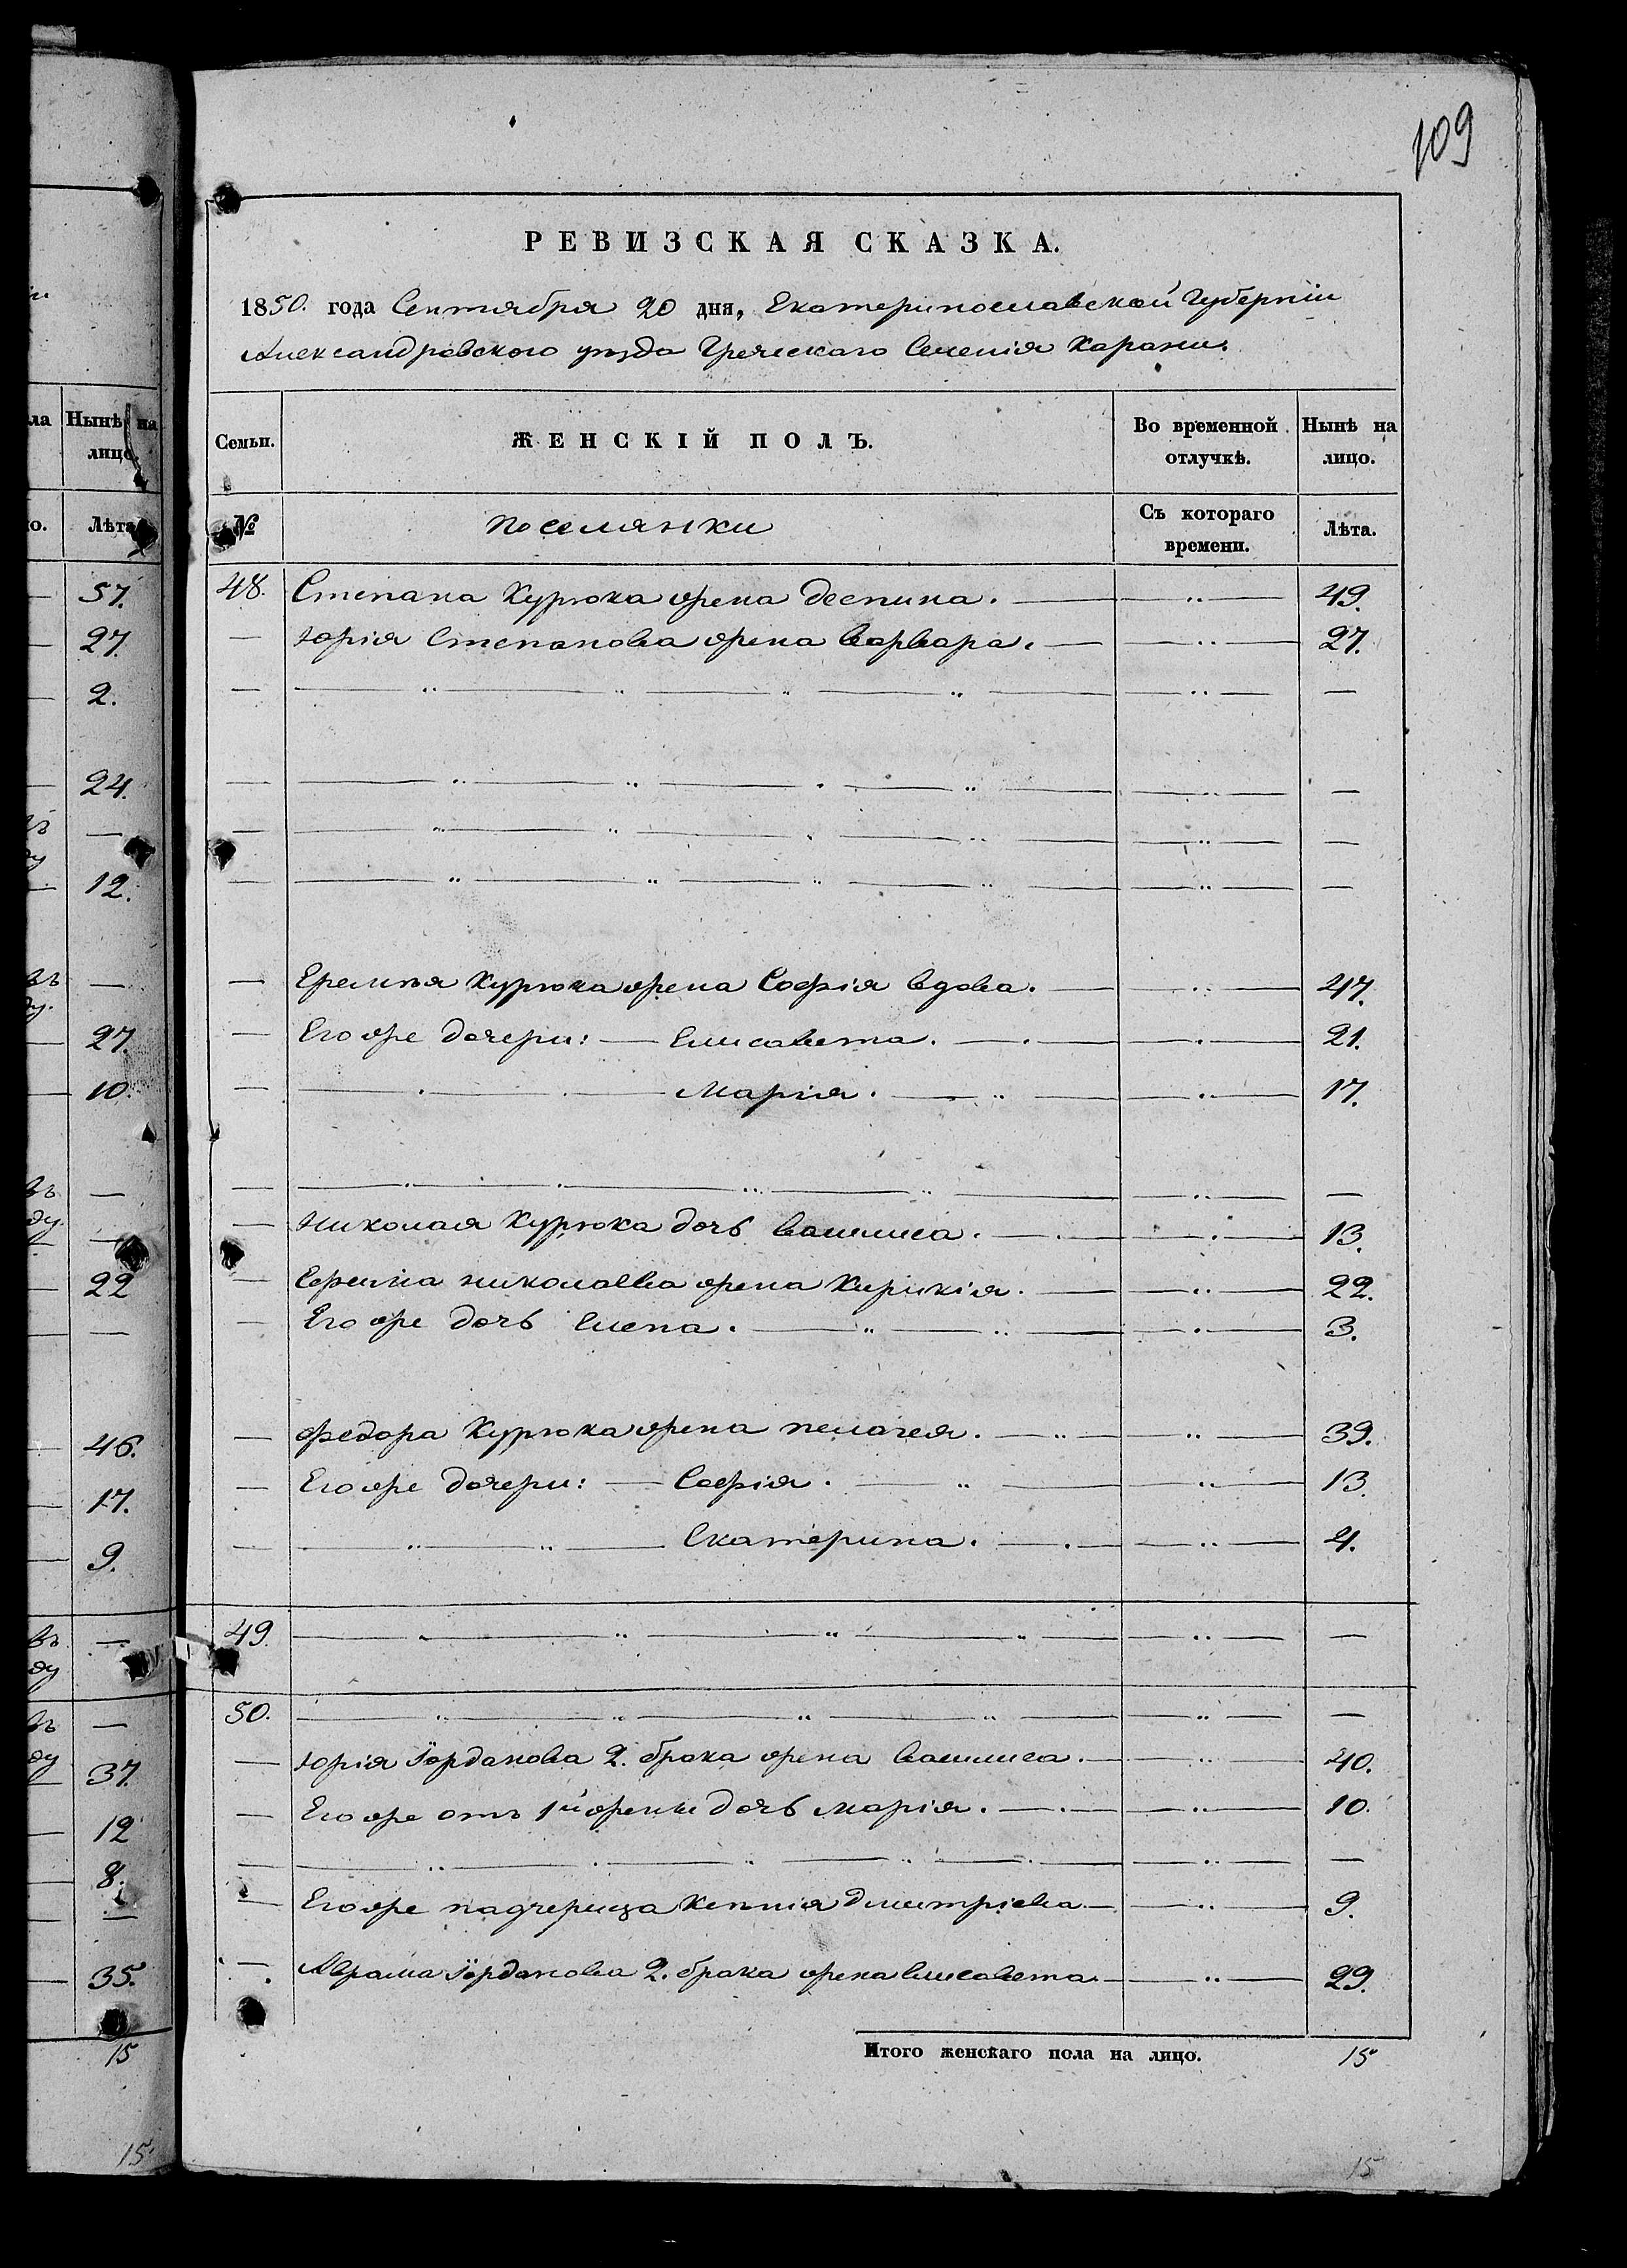 109
РЕВИЗСКАЯ СКАЗКА.
1850. года Сентября 20 дня, Екатеринославской Губерніи
Александровского уѣзда Греческаго Селенія Карани.
Семьи. ЖЕНСКІЙ ПОЛЪ. Во временной отлучкѣ. Нынѣ на лицо.
№ Поселянки Съ котораго времени. Лѣта.
48. Степана Курюка жена Деспина. — 49.
— Юрія Степанова жена Варвара. — 27.
— Еремѣя Курюка жена Софія вдова. — 47.
— Его же дочери: — Елисавета. — 21.
— Марія. — 17.
— Николая Курюка дочь Василиса. — 13.
— Николаева жена Кирикія. — 22.
— Его же дочь Елена. — 3.
— Федора Курюка жена Пелагея. — 39.
— Его же дочери: — Софія. — 13.
— Екатерина. — 4.
49. —
50. —
— Юрія Іорданова 2. брака жена Василиса. — 40.
— Его же отъ 1й женки дочь Марія. — 10.
— Его же падчерица Ксенія Дмитріева — 9.
— Аврама Іорданова 2. брака жена Елисавета — 29.
Итого женскаго пола на лицо. 15
15
Нынѣ на лицо.
Лѣта
57.
27.
2.
24.
12.
27.
10.
22
46.
17.
9.
37.
12
8.
35.
15
15